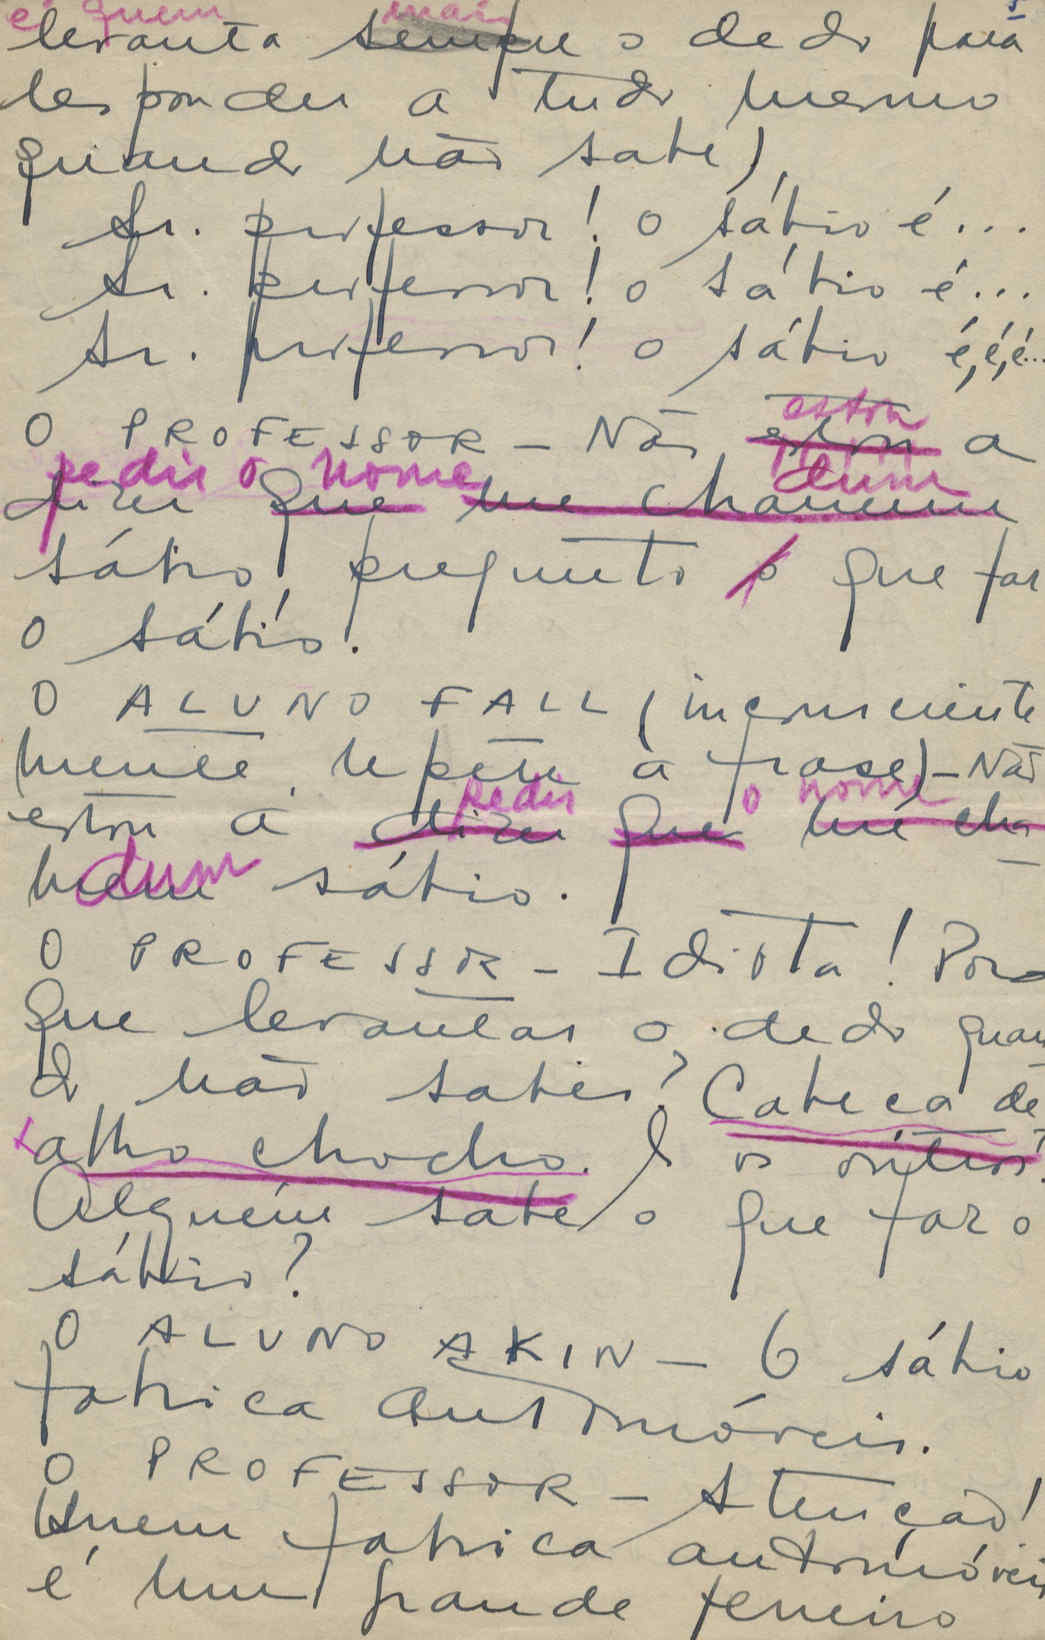 é quem mais
levanta sempre o dedo para
responder a tudo mesmo
quando não sabe)
Sr. professor! o sábio é...
Sr. professor! o sábio é...
Sr. professor! o sábio é, é, é...
estou
O PROFESSOR - Não estou a
pedir o nome dum
dizer que me chamem
sábio, pregunto o que faz
o sábio.
O ALUNO FALL (inconsciente
mente repete a frase) - Não
pedir o nome
estou a dizer que me cha
dum
mem sábio.
O PROFESSOR - Idiota! Por
que levantas o dedo quan
do não sabes? Cabeça de
alho chocho. E os outros?
Alguém sabe o que faz o
sábio?
O ALUNO AKIN - O sábio
fabrica automóveis.
O PROFESSOR - Atenção!
Quem fabrica automóveis
é um grande ferreiro